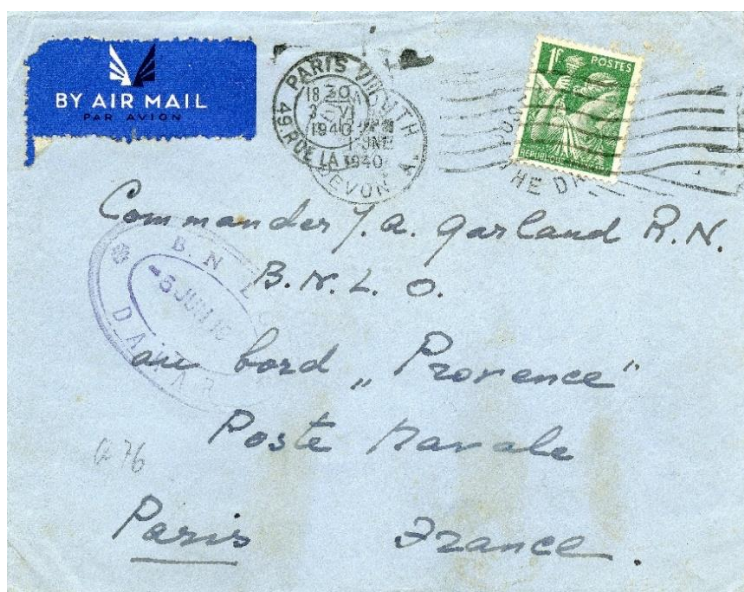 BY AIR MAIL
PAR AVION
PARIS VIII
18 30
3 VI
1940
49. RUE LA
JNE
1940
DEVON A.
1F POSTES
THE
Commander J. A. Garland R.N.
B.N.L.O.
au bord „Provence“
Poste Navale
Paris France.
B.N.L
-5 JUIN
G 76